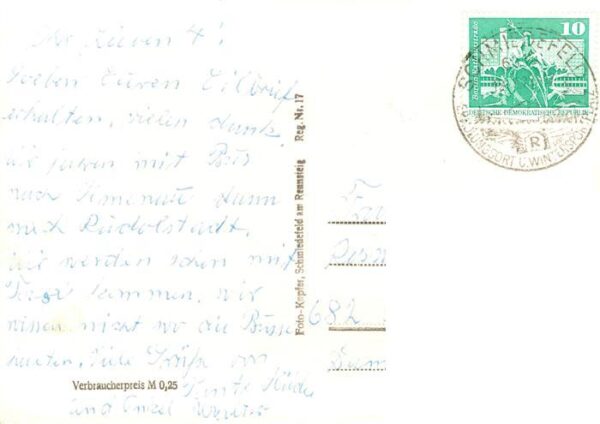 Ihr Lieben 4!
Soeben Euren Eilbrief
erhalten, vielen Dank,
wir fahren mit Bus
nach Ilmenau dann
nach Rudolstadt.
Wir werden schon mit
kommen, wir
wissen nicht wo die Busse
halten, Viele Grüße von
Tante Hilde
und Onkel Werner
Verbraucherpreis M 0,25
Foto-Kupfer, Schmiedefeld am Rennsteig Reg. Nr. 17
10
DEUTSCHE DEMOKRATISCHE REPUBLIK
SCHMIEDEFELD
ERHOLUNGSORT U. WINTERSPORTPLATZ
R
682